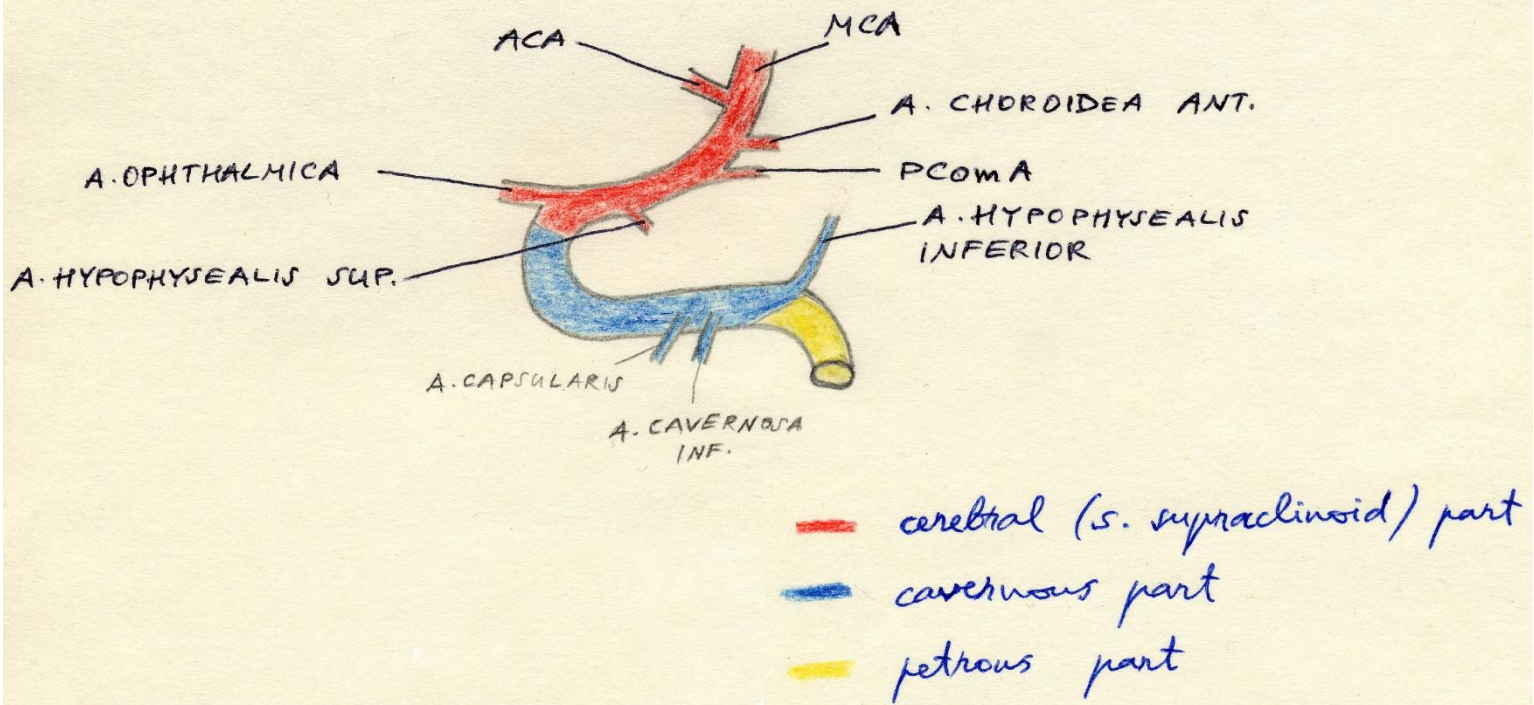 ACA
MCA
A. CHOROIDEA ANT.
A. OPHTHALMICA
PComA
A. HYPOPHYSEALIS
INFERIOR
A. HYPOPHYSEALIS SUP.
A. CAPSULARIS
A. CAVERNOSA
INF.
cerebral (s. supraclinoid) part
cavernous part
petrous part